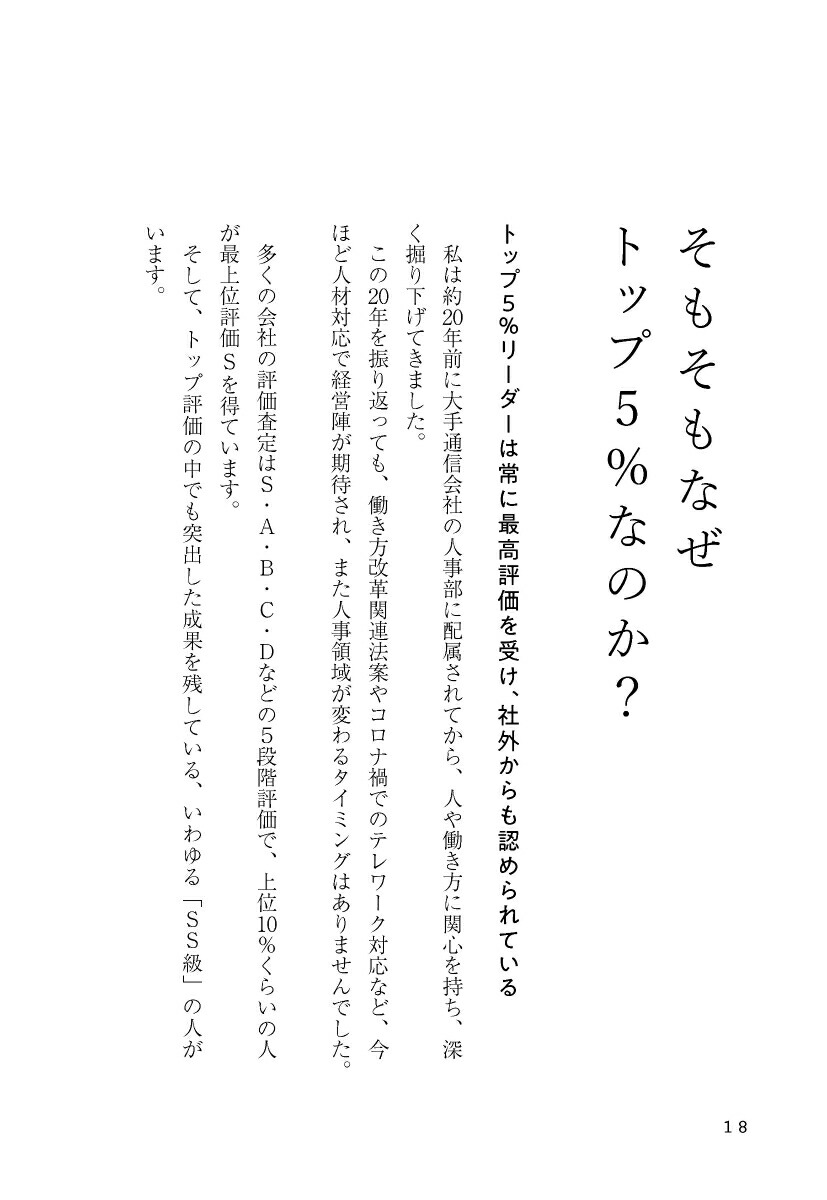 そもそもなぜ
トップ5%なのか?
トップ5%リーダーは常に最高評価を受け、社外からも認められている
私は約20年前に大手通信会社の人事部に配属されてから、人や働き方に関心を持ち、深
く掘り下げてきました。
この20年を振り返っても、働き方改革関連法案やコロナ禍でのテレワーク対応など、今
ほど人材対応で経営陣が期待され、また人事領域が変わるタイミングはありませんでした。
多くの会社の評価査定はS・A・B・C・Dなどの5段階評価で、上位10%くらいの人
が最上位評価Sを得ています。
そして、トップ評価の中でも突出した成果を残している、いわゆる「SS級」の人が
います。
18